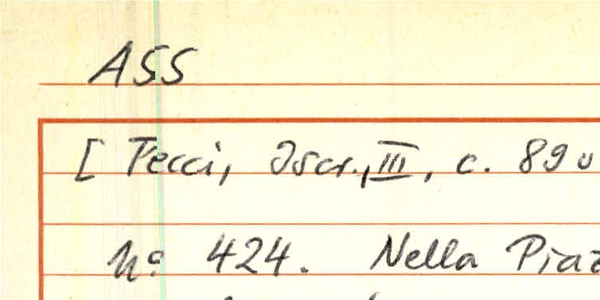 ASS
[ Pecci, Iscr., III, c. 89v
nº 424. Nella Piaz